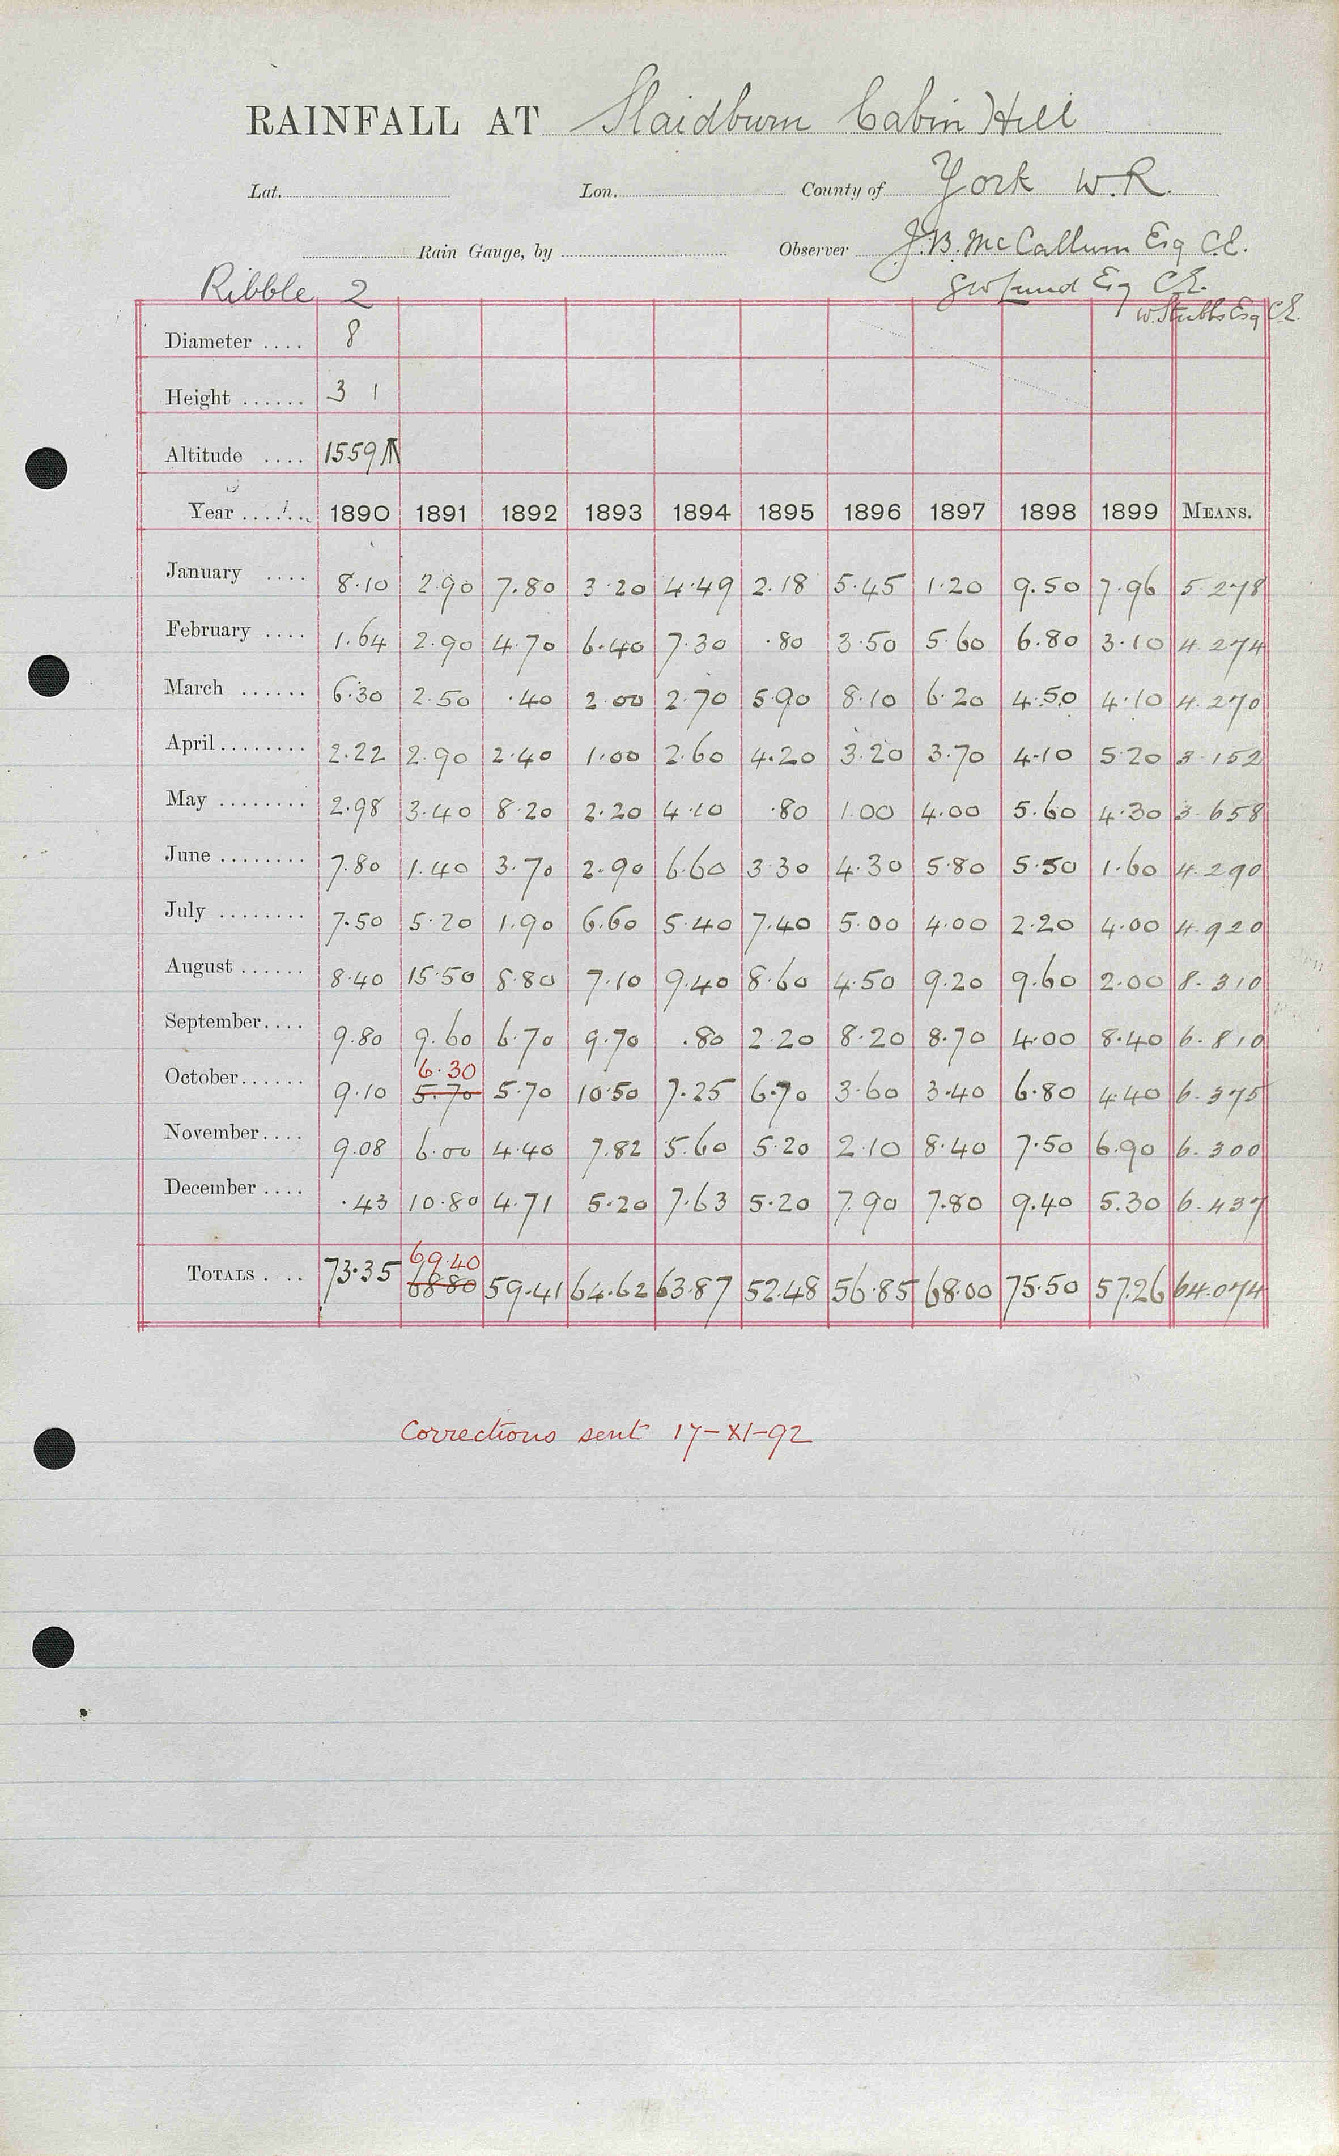 RAINFALL AT Slaidburn Cabin Hill
Lat. Lon. County of York W.R.
Rain Gauge, by Observer J.B. McCallum Esq C.E.
Ribble 2 Lund Esq C.E.
W. Stubbs Esq C.E.
Diameter .... 8
Height ...... 3 1
Altitude .... 1559
Year ...... 1890 1891 1892 1893 1894 1895 1896 1897 1898 1899 MEANS.
January .... 8.10 2.90 7.80 3.20 4.49 2.18 5.45 1.20 9.50 7.96 5.278
February .... 1.64 2.90 4.70 6.40 7.30 .80 3.50 5.60 6.80 3.10 4.274
March ...... 6.30 2.50 .40 2.00 2.70 5.90 8.10 6.20 4.50 4.10 4.270
April ........ 2.22 2.90 2.40 1.00 2.60 4.20 3.20 3.70 4.10 5.20 3.152
May ........ 2.98 3.40 8.20 2.20 4.10 .80 1.00 4.00 5.60 4.30 3.658
June ........ 7.80 1.40 3.70 2.90 6.60 3.30 4.30 5.80 5.50 1.60 4.290
July ........ 7.50 5.20 1.90 6.60 5.40 7.40 5.00 4.00 2.20 4.00 4.920
August ...... 8.40 15.50 8.80 7.10 9.40 8.60 4.50 9.20 9.60 2.00 8.310
September .... 9.80 9.60 6.70 9.70 .80 2.20 8.20 8.70 4.00 8.40 6.810
6.30
October ...... 9.10 5.70 5.70 10.50 7.25 6.70 3.60 3.40 6.80 4.40 6.375
November .... 9.08 6.00 4.40 7.82 5.60 5.20 2.10 8.40 7.50 6.90 6.300
December .... .43 10.80 4.71 5.20 7.63 5.20 7.90 7.80 9.40 5.30 6.437
69.40
TOTALS .... 73.35 68.80 59.41 64.62 63.87 52.48 56.85 68.00 75.50 57.26 64.074
Corrections sent 17-XI-92